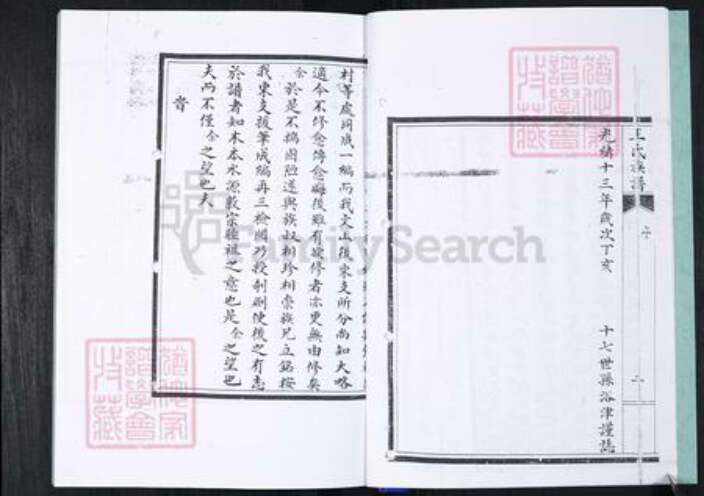 王氏族譜
序
二
光緒十三年歲次丁亥
十七世孫浴津謹誌
村等處同成一編而我文山後東支所分尚知大略
適今不修愈傳愈晦後雖有議修者亦更無由修矣
余於是不揣固陋遂與族叔相珍相崇族兄立銘按
我東支援筆成編再三檢閱乃授剞劂使後之有志
於譜者知木本水源敦宗睦祖之意也是余之望也
夫而不僅余之望也夫
FamilySearch